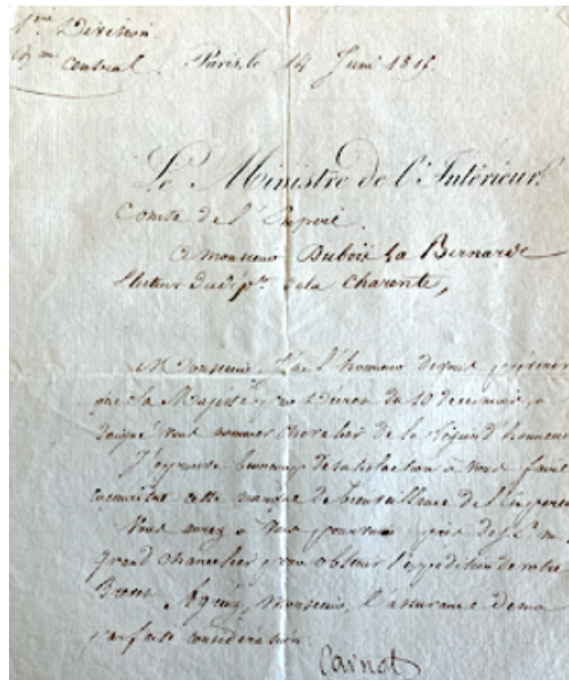 1re Division
Paris, le 14 Juin 1815.
Le Ministre de l'Intérieur,
Comte de l'Empire,
A monsieur Dubois la Bernarde
Electeur du dépt. de la Charente,
Monsieur, j'ai l'honneur de vous prévenir
que Sa Majesté, par décret du 10 de
daigné vous nommer chevalier de la Légion d'honneur
J'éprouve beaucoup de satisfaction à vous faire
connaître cette marque de bienveillance de l'Empereur
Vous aurez à vous pourvoir près de
grand chancelier pour obtenir l'expédition de votre
Brevet. Agréez, Monsieur, l'assurance de ma
parfaite considération.
Carnot